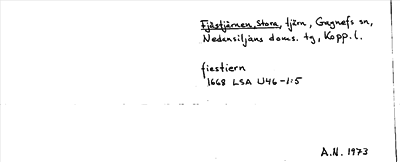 Fjästjärnen, Stora, tjärn, Gagnefs sn,
Nedansiljans doms. tg, Kopp. l.
fiestiern
1668 LSA U46-1:5
A.N. 1973